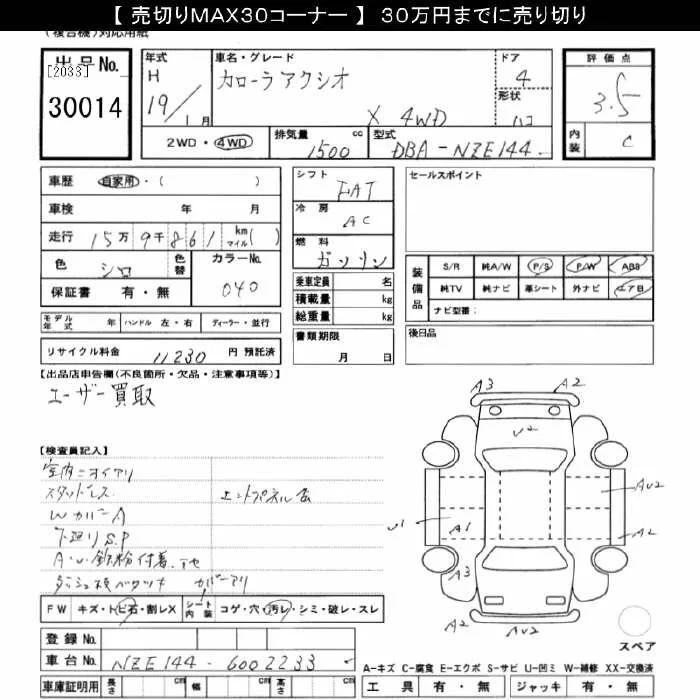 【 売切りMAX30コーナー 】 30万円までに売り切り
(複合機)対応用紙
出品No.
[2033]
30014
年式
H
19/1月
車名・グレード
カローラアクシオ
X 4WD
ドア
4
形状
ハコ
評価点
3.5
内装
C
2WD・4WD
排気量
1500
cc
型式
DBA-NZE144
車歴 自家用・( )
車検 年 月
走行 15万9千861 km マイル( )
色 シロ 色替
カラーNo.
040
保証書 有・無
モデル年式 年 ハンドル 左・右 ディーラー・並行
リサイクル料金 11230 円 預託済
シフト
FAT
冷房
AC
燃料
ガソリン
乗車定員 名
積載量 kg
総重量 kg
書類期限
月 日
セールスポイント
装備品
S/R 純A/W P/S P/W ABS
純TV 純ナビ 革シート 外ナビ エアB
ナビ型番:
後日品
【出品店申告欄(不良箇所・欠品・注意事項等)】
ユーザー買取
【検査員記入】
室内ニオイアリ
スタッドレス
WカバーA
下廻りS.P
A・U 鉄粉付着
エンドパネル
FW キズ・トビ石・割レX シート内装 コゲ・穴・汚レ・シミ・破レ・スレ
登録No.
車台No. NZE144-6002233
車庫証明用 長さ cm 幅 cm 高さ cm
A3
A2
U2
AU2
U1
A1
A2
A3
A2
AU2
スペア
A-キズ C-腐食 E-エクボ S-サビ U-凹ミ W-補修 XX-交換済
工具 有・無 ジャッキ 有・無